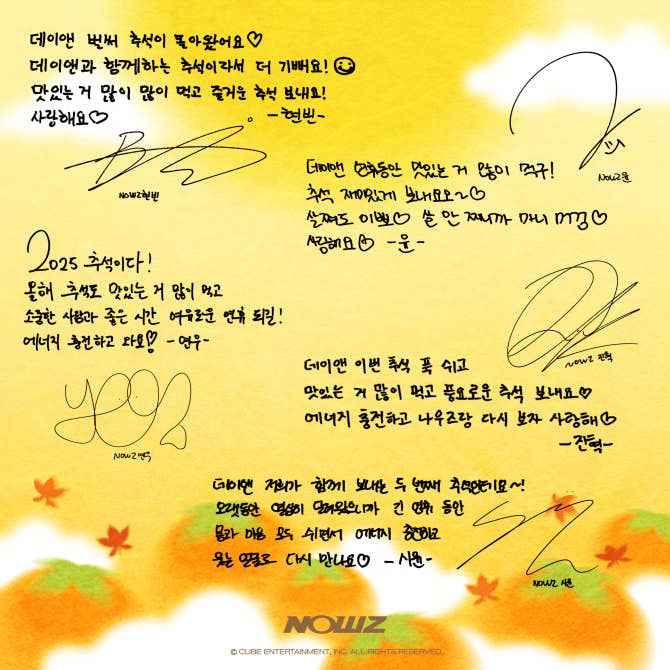 데이앤 벌써 추석이 돌아왔어요♡
데이앤과 함께하는 추석이라서 더 기뻐요!
맛있는 거 많이 많이 먹고 즐거운 추석 보내요!
사랑해요♡ -현빈-
NOWZ 현빈
NOWZ 윤
데이앤 연휴동안 맛있는 거 많이 먹구!
추석 재미있게 보내요오~♡
살쪄도 이뻐♡ 살 안 찌니까 마니 머겅♡
사랑해요♡ -윤-
2025 추석이다!
올해 추석도 맛있는 거 많이 먹고
소중한 사람과 좋은 시간 여유로운 연휴 되길!
에너지 충전하고 와요♡ -연우-
NOWZ 연우
NOWZ 진혁
데이앤 이번 추석 푹 쉬고
맛있는 거 많이 먹고 풍요로운 추석 보내요♡
에너지 충전하고 나우즈랑 다시 보자 사랑해♡
-진혁-
데이앤 저희가 함께 보내는 두 번째 추석인데요~!
오랫동안 열심히 달려왔으니까 긴 연휴 동안
몸과 마음 모두 쉬면서 에너지 충전하고
웃는 얼굴로 다시 만나요♡ -시윤-
NOWZ 시윤
NOWZ
© CUBE ENTERTAINMENT, INC. ALL RIGHTS RESERVED.